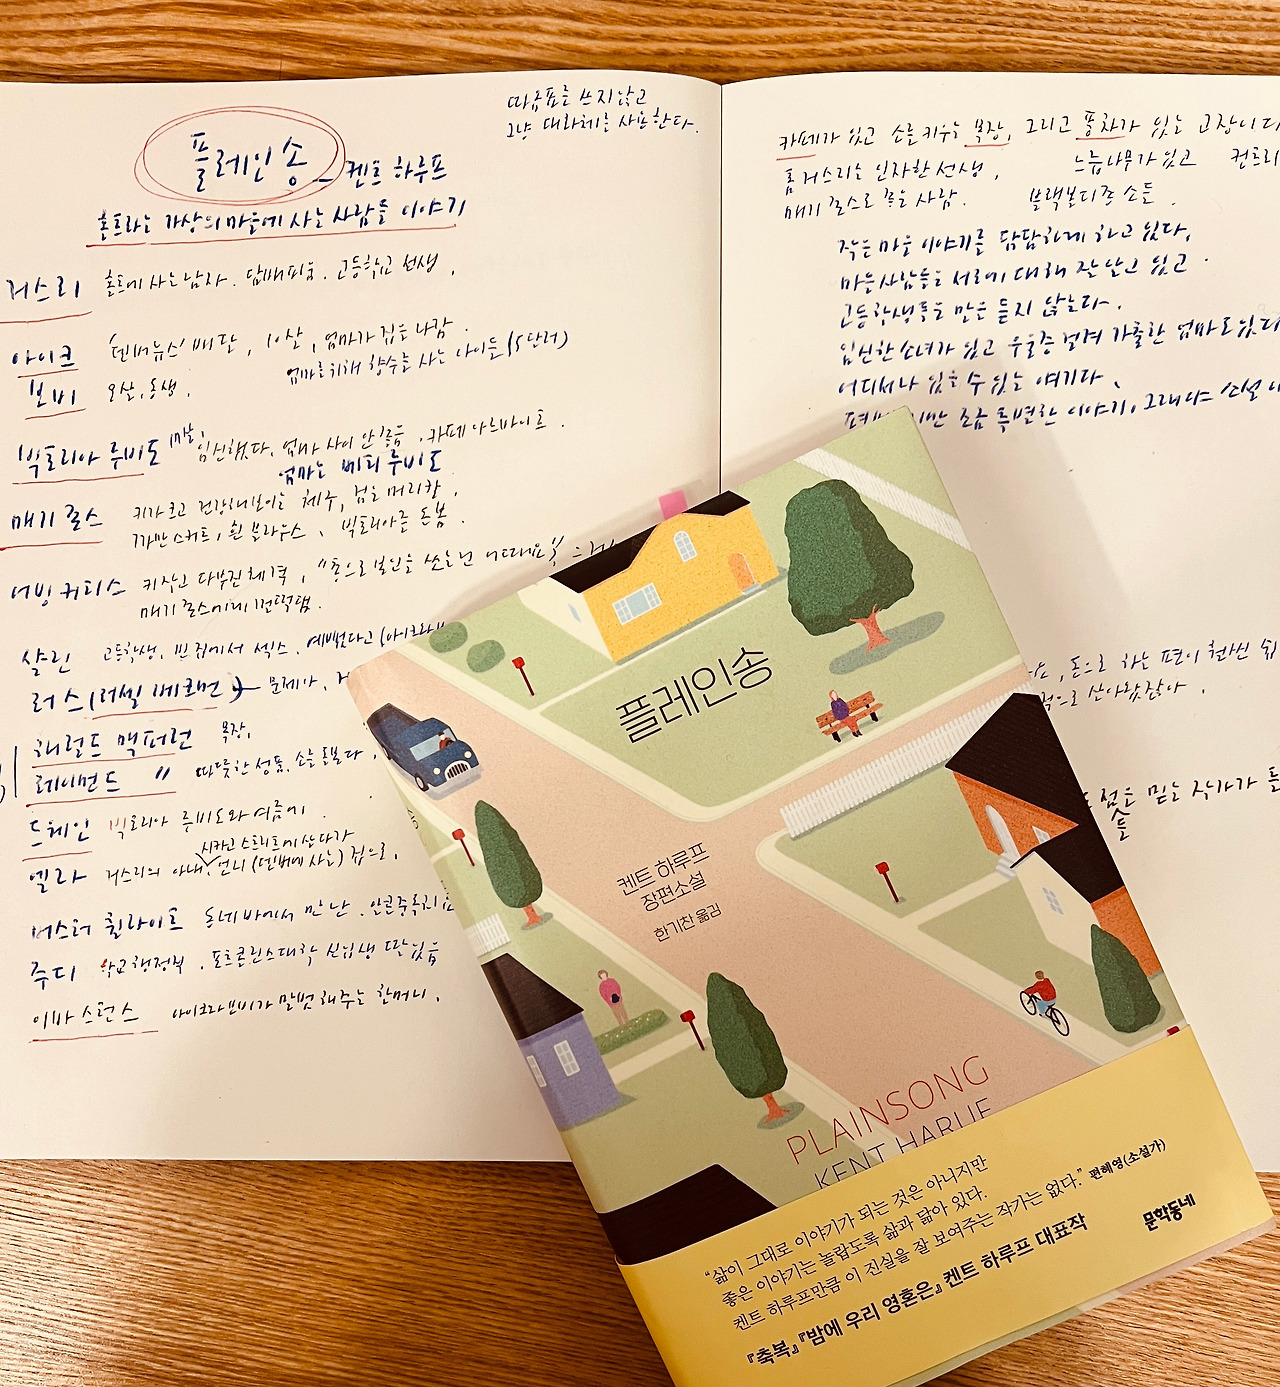 따옴표를 쓰지 않고
그냥 대화체를 사용한다.
플레인송 - 켄트 하루프
홀트라는 가상의 마을에 사는 사람들 이야기
거스리 홀트에 사는 남자. 담배피움. 고등학교 선생.
아이크 '덴버뉴스' 배달, 10살, 엄마가 집을 나감.
엄마를 위해 향수를 사는 아이들 (5달러)
보비 9살, 동생.
빅토리아 루비도 17살, 임신했다. 엄마 사이 안 좋음. 카페 아르바이트.
엄마는 베티 루비도
매기 존스 키가 크고 건강해보이는 체구, 검은 머리칼.
까만 스커트, 흰 블라우스, 빅토리아를 돌봄.
어빙 커티스 키 작고 다부진 체격, "총으로 노인을 쏘는 건 어때요"
매기 존스에게 껄떡댐.
샬린 고등학생, 빈 집에서 섹스. 예뻤다고
러스 (러셀 베크먼) 문제아,
해럴드 맥퍼런 목장,
레이먼드 〃 따뜻한 성품, 소를 돌본다.
드웨인 빅토리아 루비도와 여름에.
엘라 거스리의 아내, 시카고 스트리트에 살다가 언니 (덴버에 사는) 집으로.
버스터 휠라이트 동네 바에서 만난. 알콜중독
주디 학교 행정직. 포트콜린스대학 신입생 딸 있음
이바 스턴스 아이크와 보비가 말벗 해주는 할머니.
카페가 있고 소를 키우는 목장, 그리고 풍차가 있는 고장이다
톰 거스리는 인자한 선생, 느릅나무가 있고 컨트리
매기 존스도 좋은 사람. 블랙볼디종 소들.
작은 마을 이야기를 담담하게 하고 있다,
마을 사람들은 서로에 대해 잘 알고 있고.
고등학생들은 말을 듣지 않는다.
임신한 소녀가 있고 우울증 걸려 가출한 엄마도 있다
어디서나 있을 수 있는 얘기다.
조금 특별한 이야기. 그래야 소설
, 돈으로 하는 편이 훨씬 쉽
살아왔잖아.
믿는 작가가
들
플레인송
켄트 하루프
장편소설
한기찬 옮김
PLAINSONG
KENT HARUF
"삶이 그대로 이야기가 되는 것은 아니지만
좋은 이야기는 놀랍도록 삶과 닮아 있다.
켄트 하루프만큼 이 진실을 잘 보여주는 작가는 없다." 편혜영(소설가)
『축복』『밤에 우리 영혼은』 켄트 하루프 대표작
문학동네